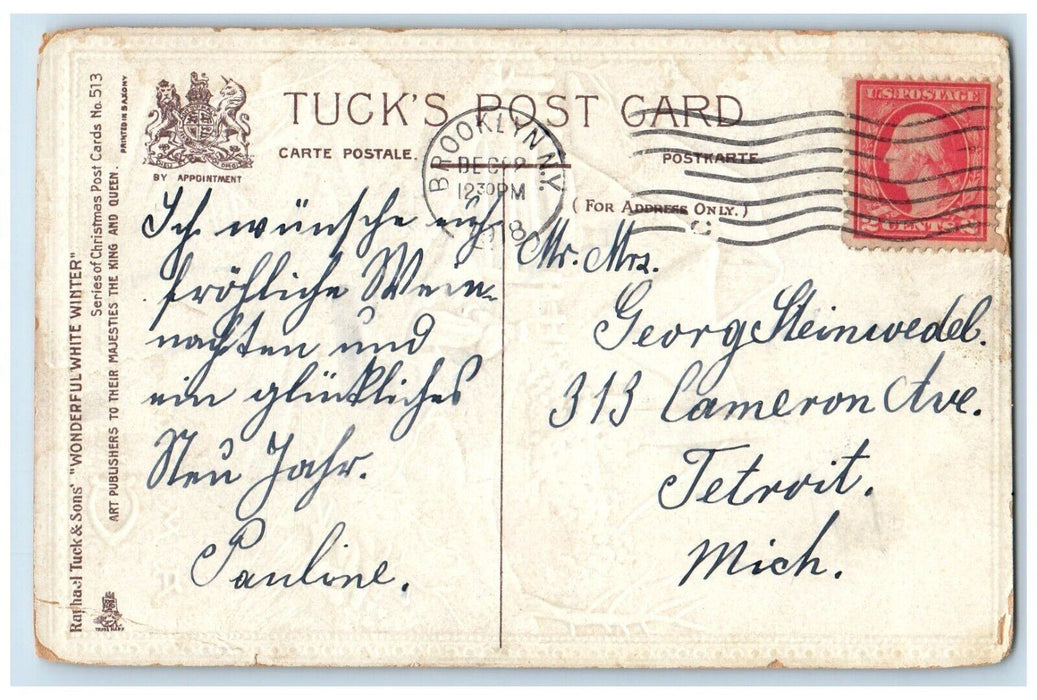 Raphael Tuck & Sons' "WONDERFUL WHITE WINTER"
Series of Christmas Post Cards No. 513
ART PUBLISHERS TO THEIR MAJESTIES THE KING AND QUEEN.
PRINTED IN SAXONY
TRADE MARK
BY APPOINTMENT
TUCK'S POST CARD
CARTE POSTALE.
POSTKARTE.
(FOR ADDRESS ONLY.)
BROOKLYN, N.Y.
DEC
12 30 PM
U.S. POSTAGE
2 CENTS 2
Ich wünsche euch
fröhliche Wein-
nachten und
ein glückliches
Neu Jahr.
Pauline.
Mr. Mrs.
Georg Steinwedel.
313 Cameron Ave.
Tetroit.
Mich.